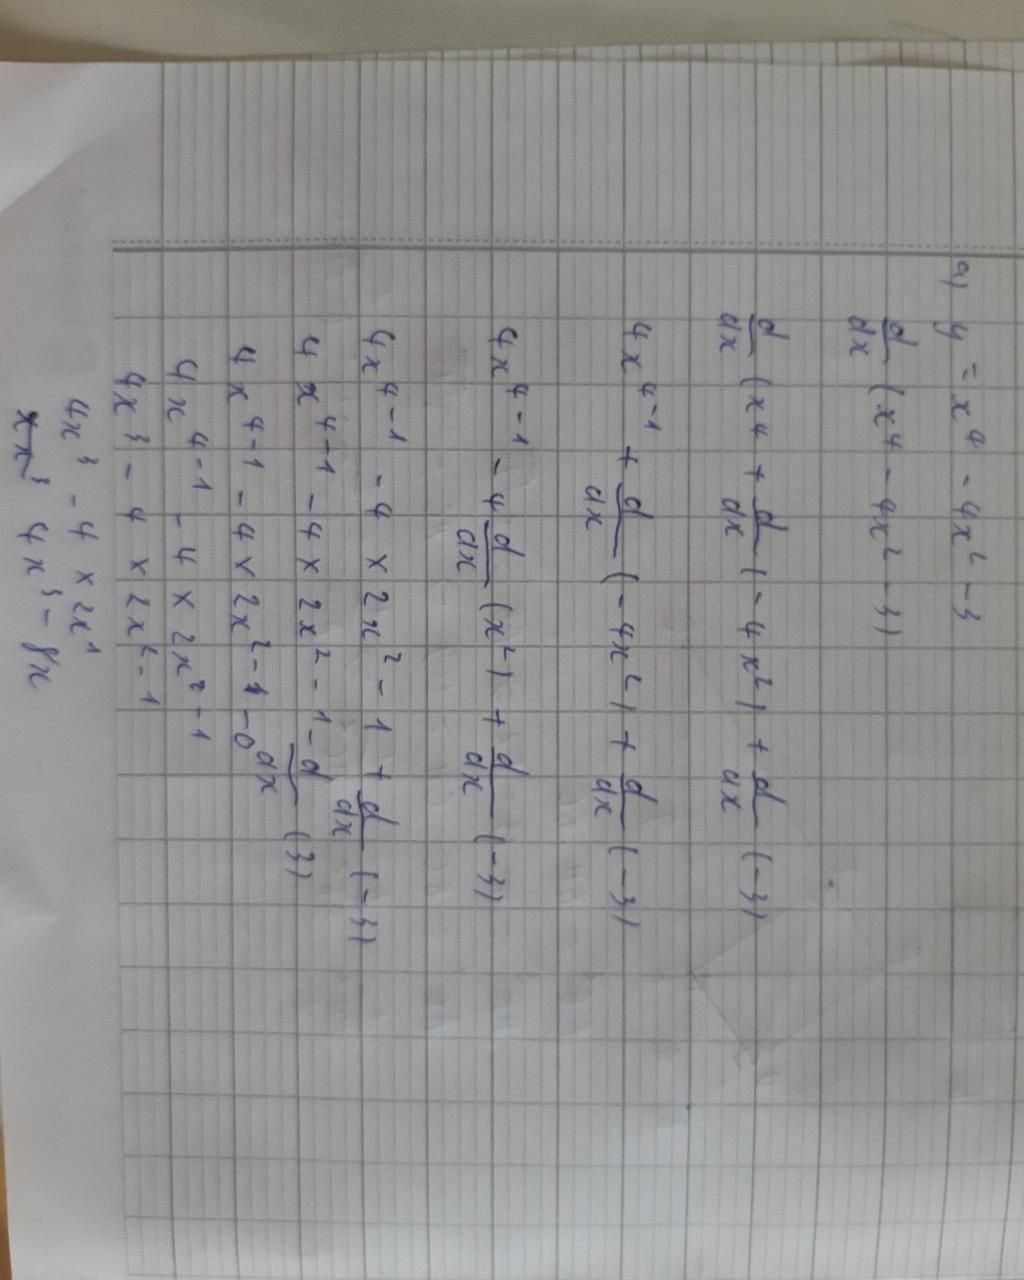 a) y = x⁴ - 4x² - 3
d/dx (x⁴ - 4x² - 3)
d/dx (x⁴ + d/dx (-4x²) + d/dx (-3)
4x⁴⁻¹ + d/dx (-4x²) + d/dx (-3)
4x⁴⁻¹ - 4 d/dx (x²) + d/dx (-3)
4x⁴⁻¹ - 4 × 2x²⁻¹ + d/dx (-3)
4x⁴⁻¹ - 4 × 2x²⁻¹ - d/dx (3)
4x⁴⁻¹ - 4 × 2x²⁻¹ - 0
4x⁴⁻¹ - 4 × 2x²⁻¹
4x³ - 4 × 2x²⁻¹
4x³ - 4 × 2x¹
4x³ - 8x